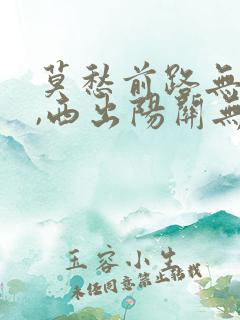 莫愁前路無
,西出陽關無
玉容小生
未经同意禁止转载